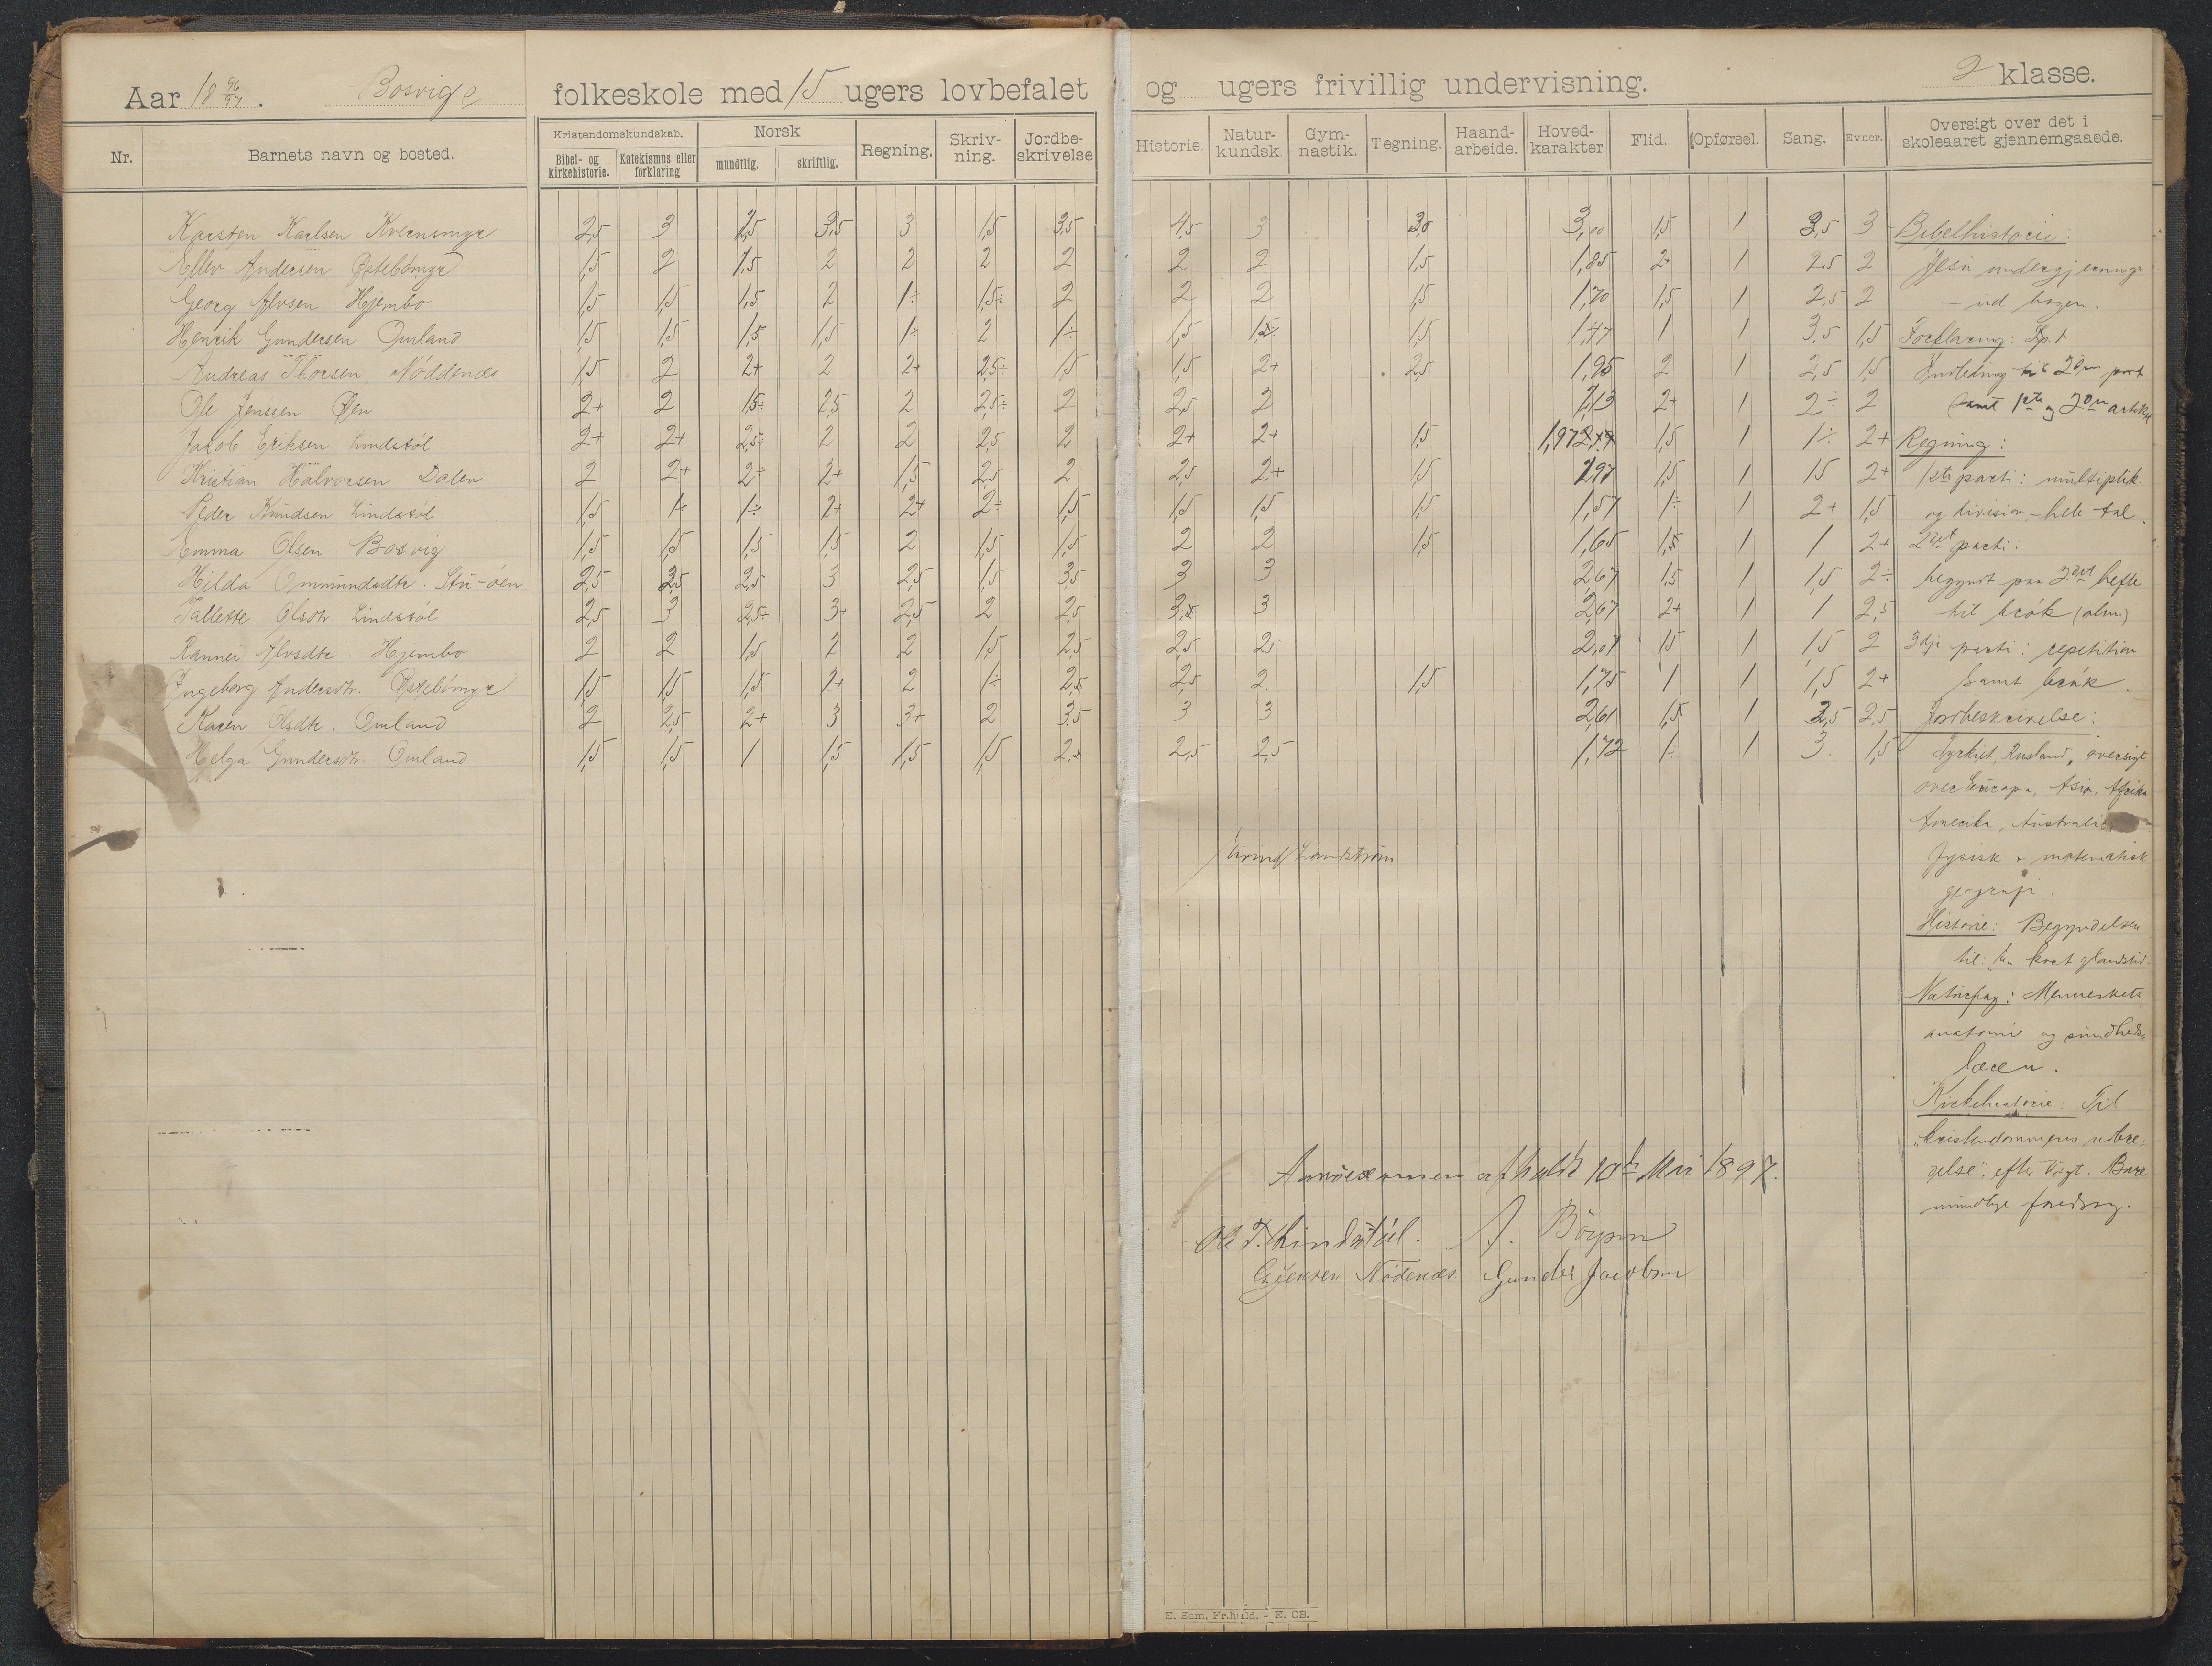 Aar 18 96/97. Bosvigs folkeskole med 15 ugers lovbefalet og ugers frivillig undervisning. 2 klasse.
Nr. Barnets navn og bosted. Kristendomskundskab. Bibel- og kirkehistorie. Katekismus eller forklaring Norsk mundtlig. skriftlig. Regning. Skriv-ning. Jordbe-skrivelse Historie. Natur-kundsk. Gym-nastik. Tegning. Haand-arbeide. Hoved-karakter Flid. Opførsel. Sang. Evner. Oversigt over det i skoleaaret gjennemgaaede.
Karsten Karlsen Kvernmyr 2,5 3 2,5 3,5 3 1,5 3,5 4,5 3 3,0 3,00 1,5 1 3,5 3 Bibelhistorie:
Ellev Andersen Østebømyr 1,5 2 1,5 2 2 2 2 2 2 1,5 1,85 2+ 1 2,5 2 Jesu undergjerninger
Georg Alvsen Hjembo 1,5 1,5 1,5 2 1÷ 1,5÷ 2 2 2 1,5 1,70 1,5 1 2,5 2 – ud bogen.
Henrik Gundersen Omland 1,5 1,5 1,5 1,5 1÷ 2 1÷ 1,5 1,5÷ 1,5 1,47 1 1 3,5 1,5 Forklaring:
Andreas Thorsen Nöddenæs 1,5 2 2+ 2 2+ 2,5÷ 1,5 1,5 2+ 2,5 1,95 2 1 2,5 1,5 Indledning til 2den part
Ole Jenssen Øen 2+ 2 1,5÷ 2,5 2 2,5÷ 2 2,5 2 2,13 2+ 1 2÷ 2 samt 1ste og 2den artikel
Jakob Eriksen Lindstöl 2+ 2+ 2,5÷ 2 2 2,5 2 2+ 2+ 1,5 1,97 1,5 1 1÷ 2+ Regning:
Kristian Halvorsen Dalen 2 2+ 2÷ 2+ 1,5 2,5 2 2,5 2+ 1,5 1,97 1,5 1 1,5 2+ 1ste parti: multiplik.
Peder Knudsen Lindstöl 1,5 1÷ 1÷ 2+ 2+ 2÷ 1,5 1,5 1,5 1,5 1,57 1÷ 1 2+ 1,5 og division – hele tal.
Emma Olsen Bosvig 1,5 1,5 1,5 1,5 2 1,5 1,5 2 2 1,5 1,65 1,5 1 1 2+ 2det parti:
Hilda Ommundsdtr. Stu-öen 2,5 2,5 2,5 3 2,5 1,5 3,5 3 3 2,67 1,5 1 1,5 2÷ begyndt paa 2det hefte
Tallette Olsdtr. Lindstöl 2,5 3 2,5÷ 3+ 2,5 2 2,5 3,5 3 2,67 2+ 1 1 2,5 til brök (alm.)
Rannei Alvsdtr. Hjembo 2 2 1,5 2 2 1,5 2,5 2,5 2,5 2,07 1,5 1 1,5 2 3dje parti: repetition
Ingeborg Andersdtr. Østebömyr 1,5 1,5 1,5 2+ 2 1÷ 2,5 2,5 2 1,5 1,75 1 1 1,5 2+ samt brök.
Karen Olsdtr. Omland 2 2,5 2+ 3 3+ 2 3,5 3 3 2,61 1,5 1 2,5 2,5 Jordbeskrivelse:
Helga Gundersdtr. Omland 1,5 1,5 1 1,5 1,5 1,5 2,5 2,5 2,5 1,72 1÷ 1 3 1,5 Tyrkiet, Rusland, oversigt
over Europa, Asia, Afrika
Amerika, Australien
Landström
fysisk & matematisk
geografi.
Historie: Begyndelsen
til: kort glandstid.
Naturfag: Menneskets
anatomi og sundheds-
læren.
Kirkehistorie: Til
"kristendommens udbre-
delse", efter Vogt. Bare
mundtlige foredrag.
Aarsexamen afholdt 10de Mai 1897.
Ole T. Lindstöl.
Nödenæs. Gunder Jacobsen
E. Sem. Fr.hald. - E. CB.